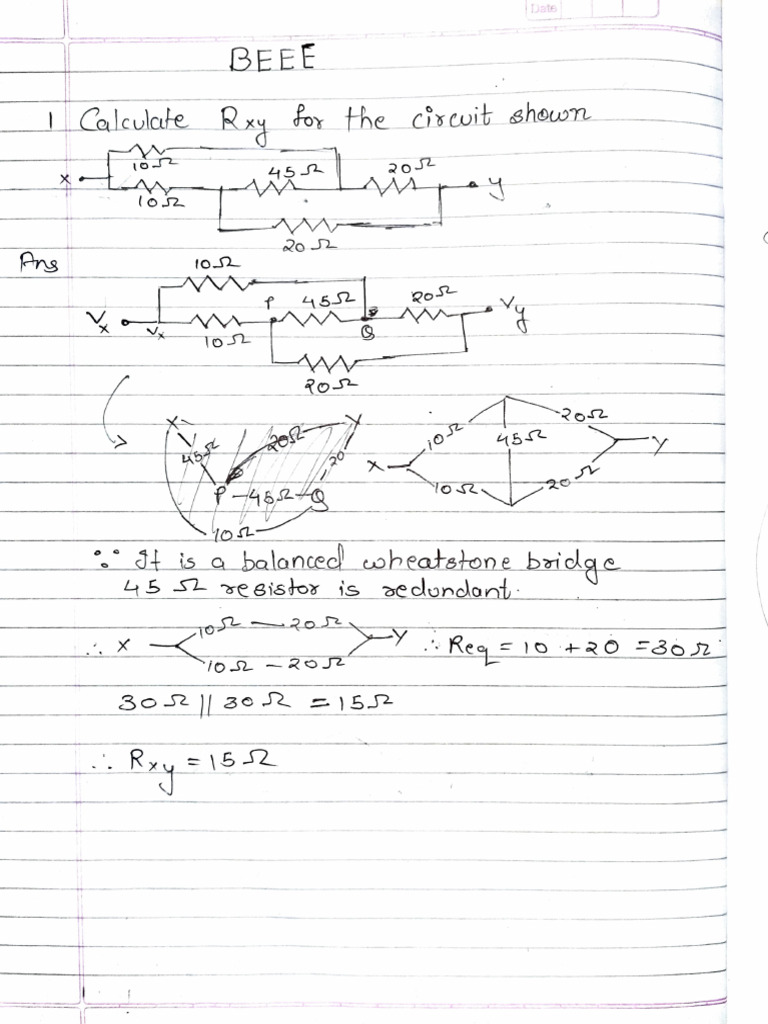 Date
BEEE
1 Calculate Rxy for the circuit shown
10Ω
x 45Ω 20Ω y
10Ω
20Ω
Ans
10Ω
P 45Ω 20Ω Vy
Vx Vx Q
10Ω
20Ω
X Y 20Ω
45Ω 20Ω 20 10Ω 45Ω Y
P -45Ω-Q X 10Ω 20Ω
10Ω
∵ It is a balanced wheatstone bridge
45 Ω resistor is redundant.
10Ω — 20Ω
∴ X Y ∴ Req = 10 + 20 = 30Ω
10Ω - 20Ω
30Ω || 30Ω = 15Ω
∴ Rxy = 15Ω